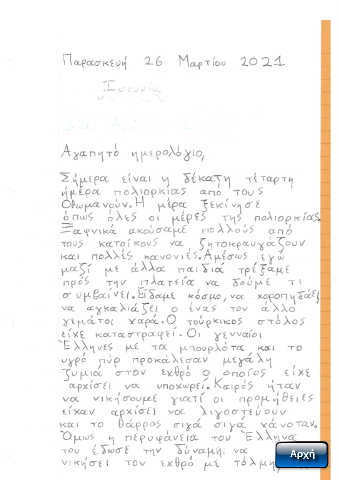 Παρασκευή 26 Μαρτίου 2021
Αγαπητό ημερολόγιο,
Σήμερα είναι η δέκατη τέταρτη
ημέρα πολιορκίας από τους
Οθωμανούν. Η μέρα ξεκίνησε
όπως όλες οι μέρες της πολιορκίας.
Ξαφνικά ακούσαμε πολλούς από
τους κατοίκους να ζητοκραυγάζουν
και πολλές κανονιές. Αμέσως εγώ
μαζί με άλλα παιδιά τρέξαμε
προς την πλατεία να δούμε τι
συμβαίνει. Είδαμε κόσμο, να χοροπηδάει
να αγκαλιάζει ο ένας τον άλλο
γεμάτοι χαρά. Ο τούρκικος στόλος
είχε καταστραφεί. Οι γενναίοι
Έλληνες με τα μπουρλότα και το
υγρό πύρ προκάλεσαν μεγάλη
ζυμιά στον εχθρό ο οποίος είχε
αρχίσει να υποχωρεί. Καιρός ήταν
να νικήσουμε γιατί οι προμήθειες
είχαν αρχίσει να λιγοστεύουν
και το θάρρος σιγά σιγά χάνοταν.
Όμως η περηφάνεια του Έλληνα
του έδωσε την δύναμη να
νικήσει τον εχθρό με τόλμη,
Αρχή